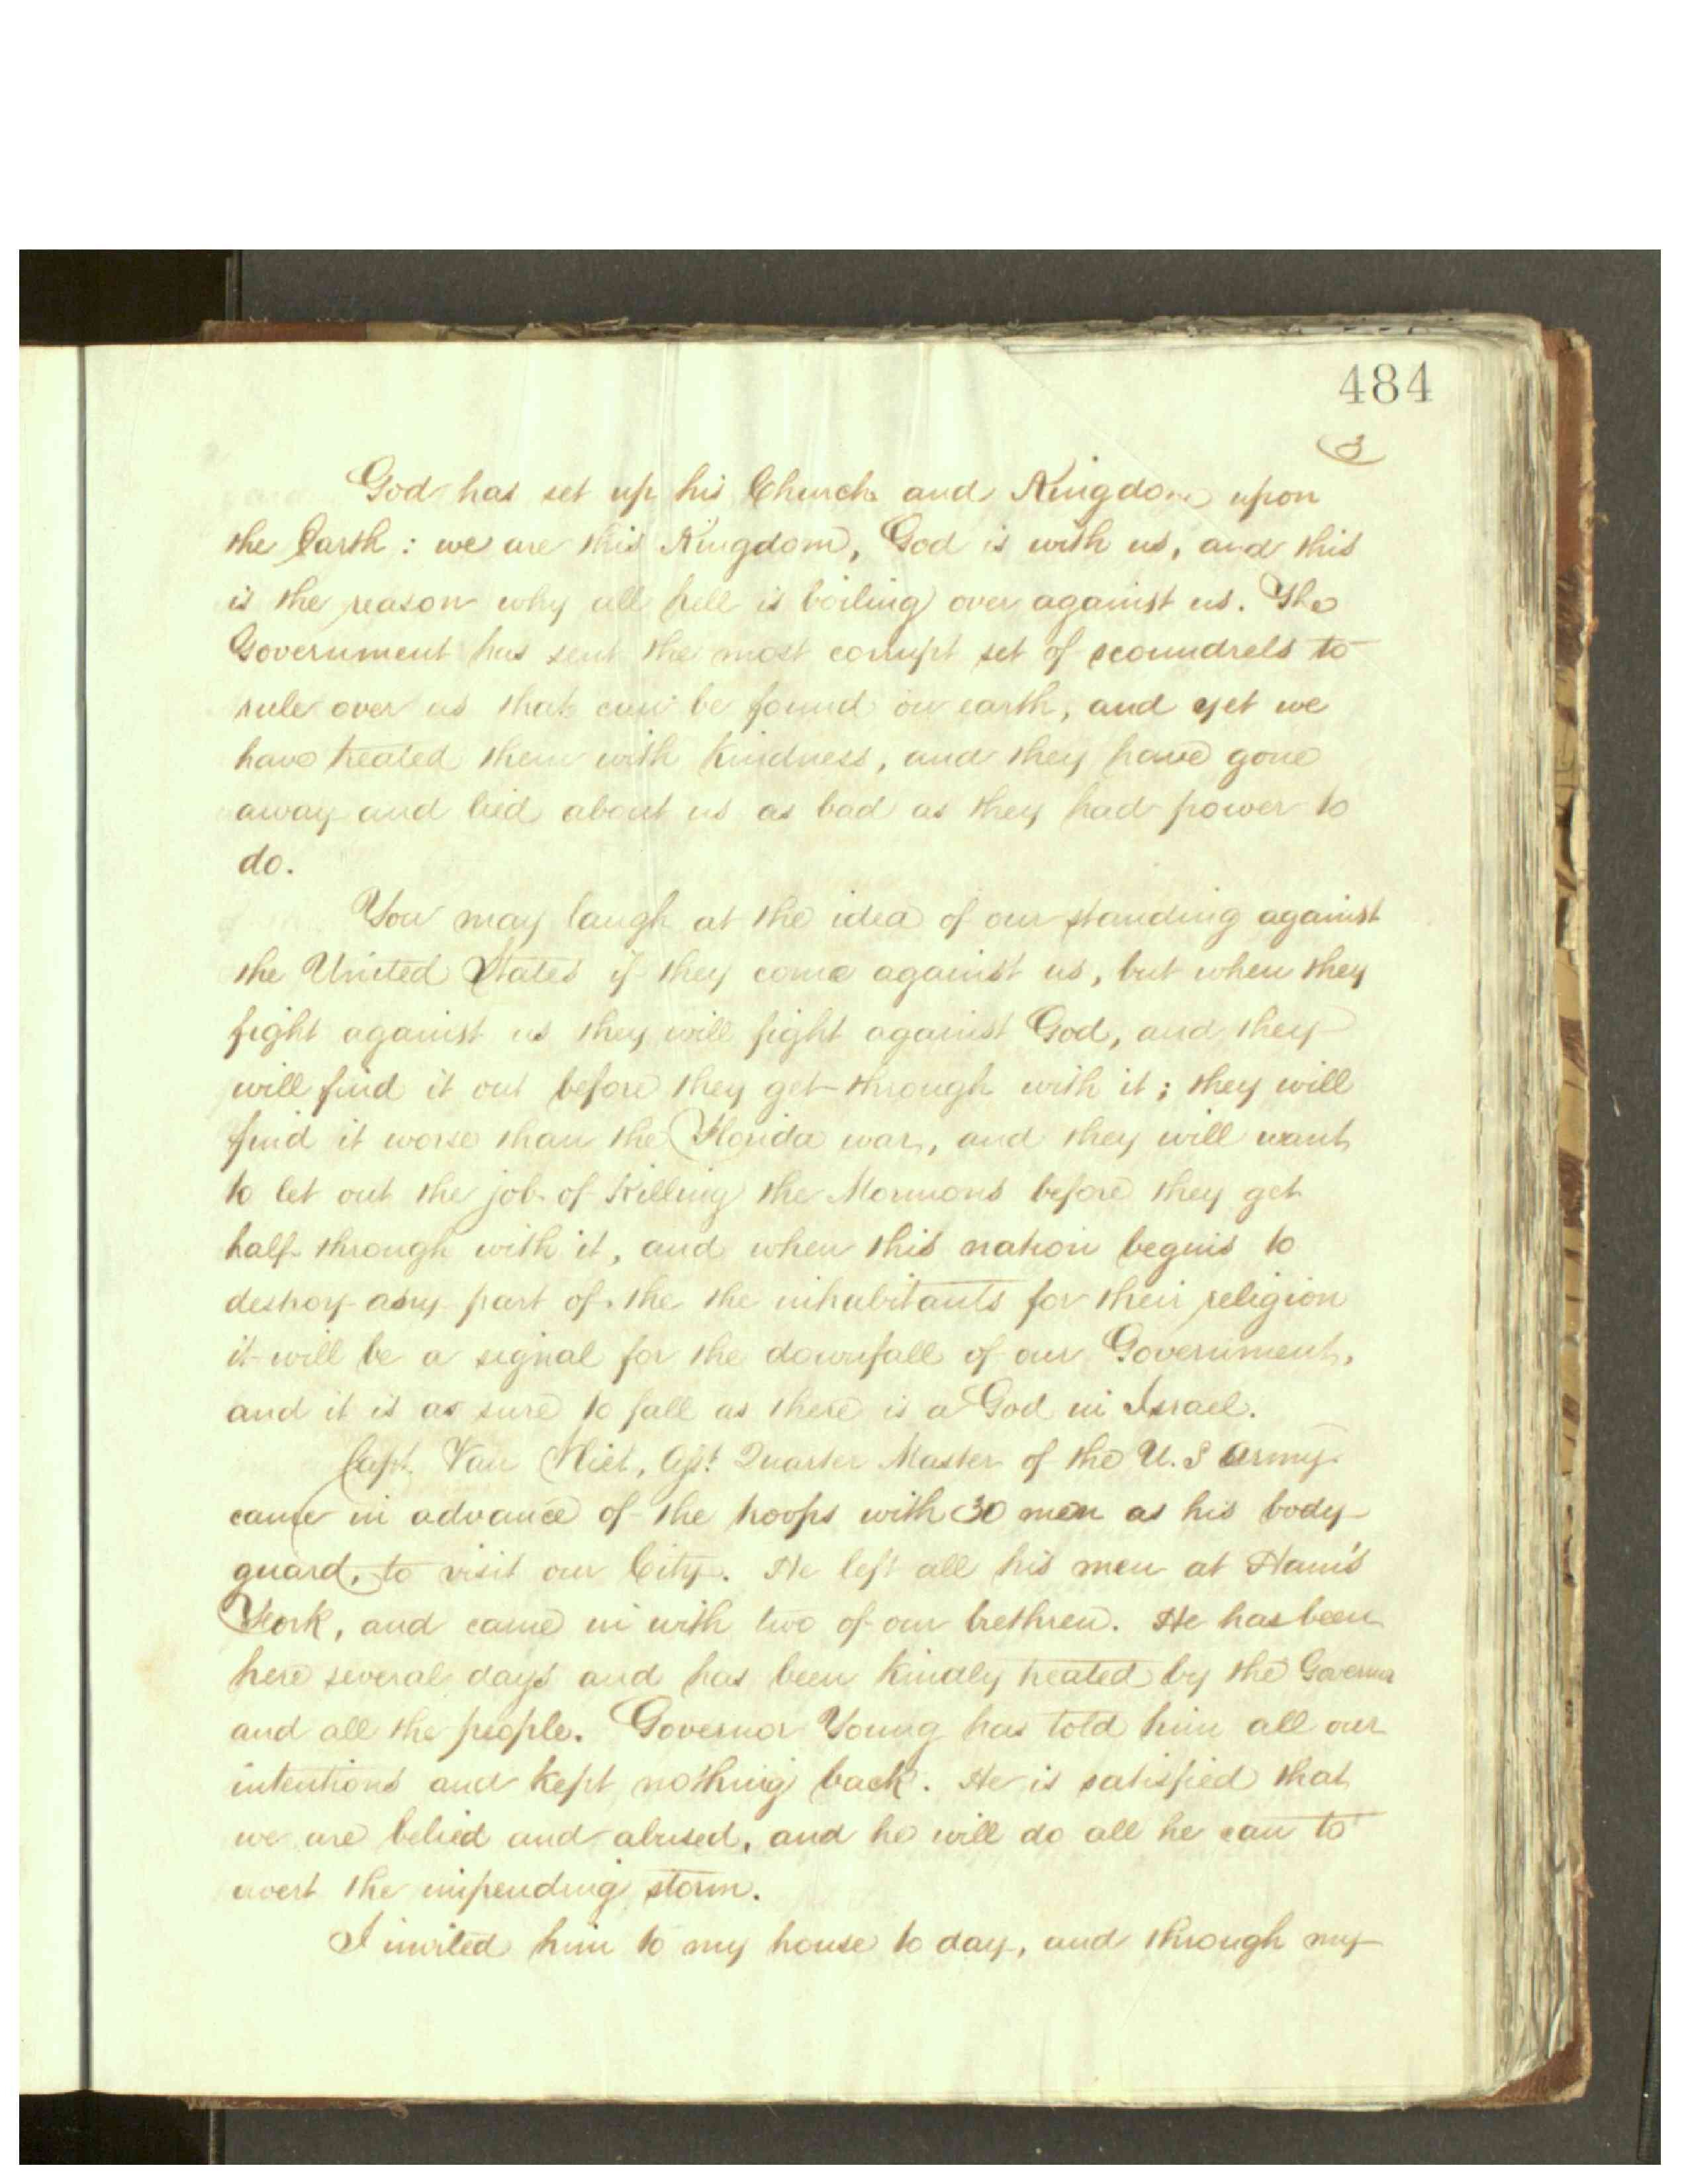 484
3
God has set up his Church and Kingdom upon
the Earth: we are this Kingdom, God is with us, and this
is the reason why all hell is boiling over against us. The
Government has sent the most corrupt set of scoundrels to
rule over us that can be found on earth, and yet we
have treated them with kindness, and they have gone
away and lied about us as bad as they had power to
do.
You may laugh at the idea of our standing against
the United States if they come against us, but when they
fight against us they will fight against God, and they
will find it out before they get through with it; they will
find it worse than the Florida war, and they will want
to let out the job of Killing the Mormons before they get
half through with it, and when this nation begins to
destroy any part of the the inhabitants for their religion
it will be a signal for the downfall of our Government,
and it is as sure to fall as there is a God in Israel.
Capt. Van Vliet, Ast. Quarter Master of the U. S Army
came in advance of the troops with 30 men as his body
guard, to visit our City. He left all his men at Ham's
Fork, and came in with two of our brethren. He has been
here several days and has been Kindly treated by the Governor
and all the people. Governor Young has told him all our
intentions and Kept nothing back. He is satisfied that
we are belied and abused, and he will do all he can to
avert the impending storm.
I invited him to my house to day, and through my